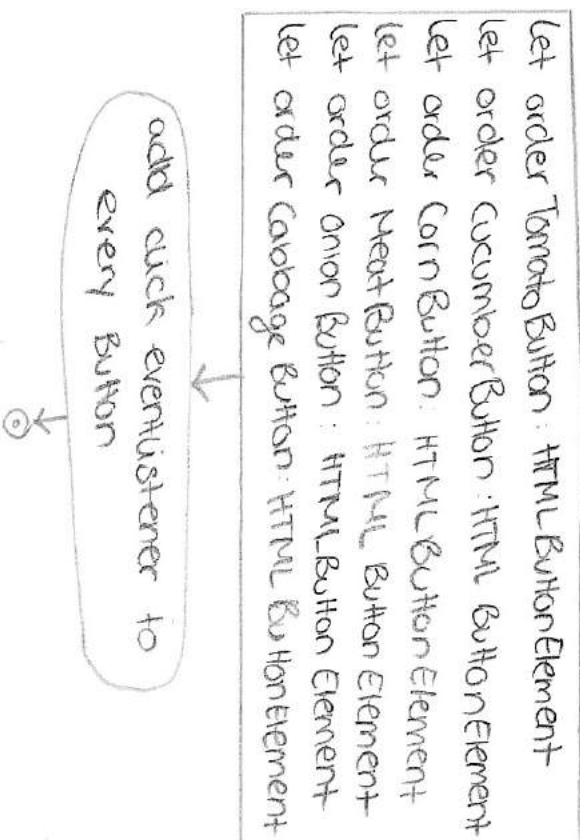 let orderTomatoButton: HTMLButtonElement
let orderCucumberButton: HTML ButtonElement
let order CornButton: HTMLButtonElement
let order MeatButton: HTML Button Element
let order Onion Button: HTMLButton Element
let order Cabbage Button: HTML ButtonElement
add click eventListener to
every Button